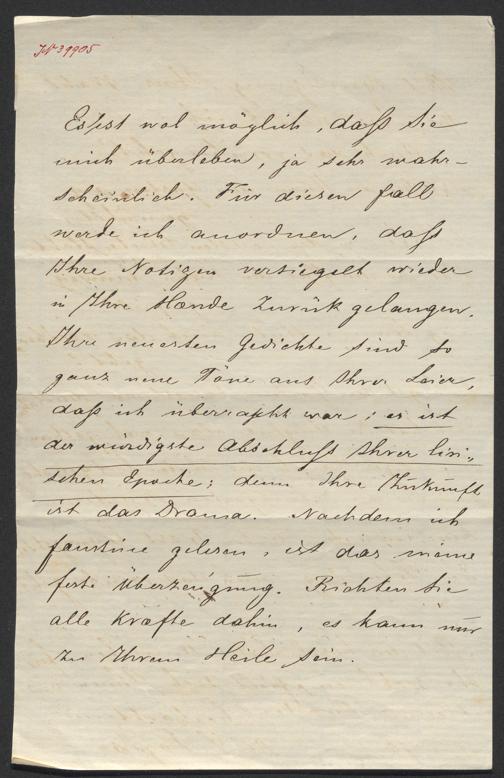 JN 39905
Es ist wol möglich, daß Sie
mich überleben, ja sehr wahr-
scheinlich. Für diesen Fall
werde ich anordnen, daß
Ihre Notizen versiegelt wieder
in Ihre Hænde zurük gelangen.
Ihre neuesten Gedichte sind so
ganz neue Töne aus Ihrer Leier,
daß ich überrascht war; es ist
der würdigste Abschluß Ihrer liri-
schen Epoche; denn Ihre Zukunft
ist das Drama. Nachdem ich
Faustine gelesen, ist das meine
feste Überzeugung. Richten Sie
alle Kræfte dahin, es kann nur
zu Ihrem Heile sein.